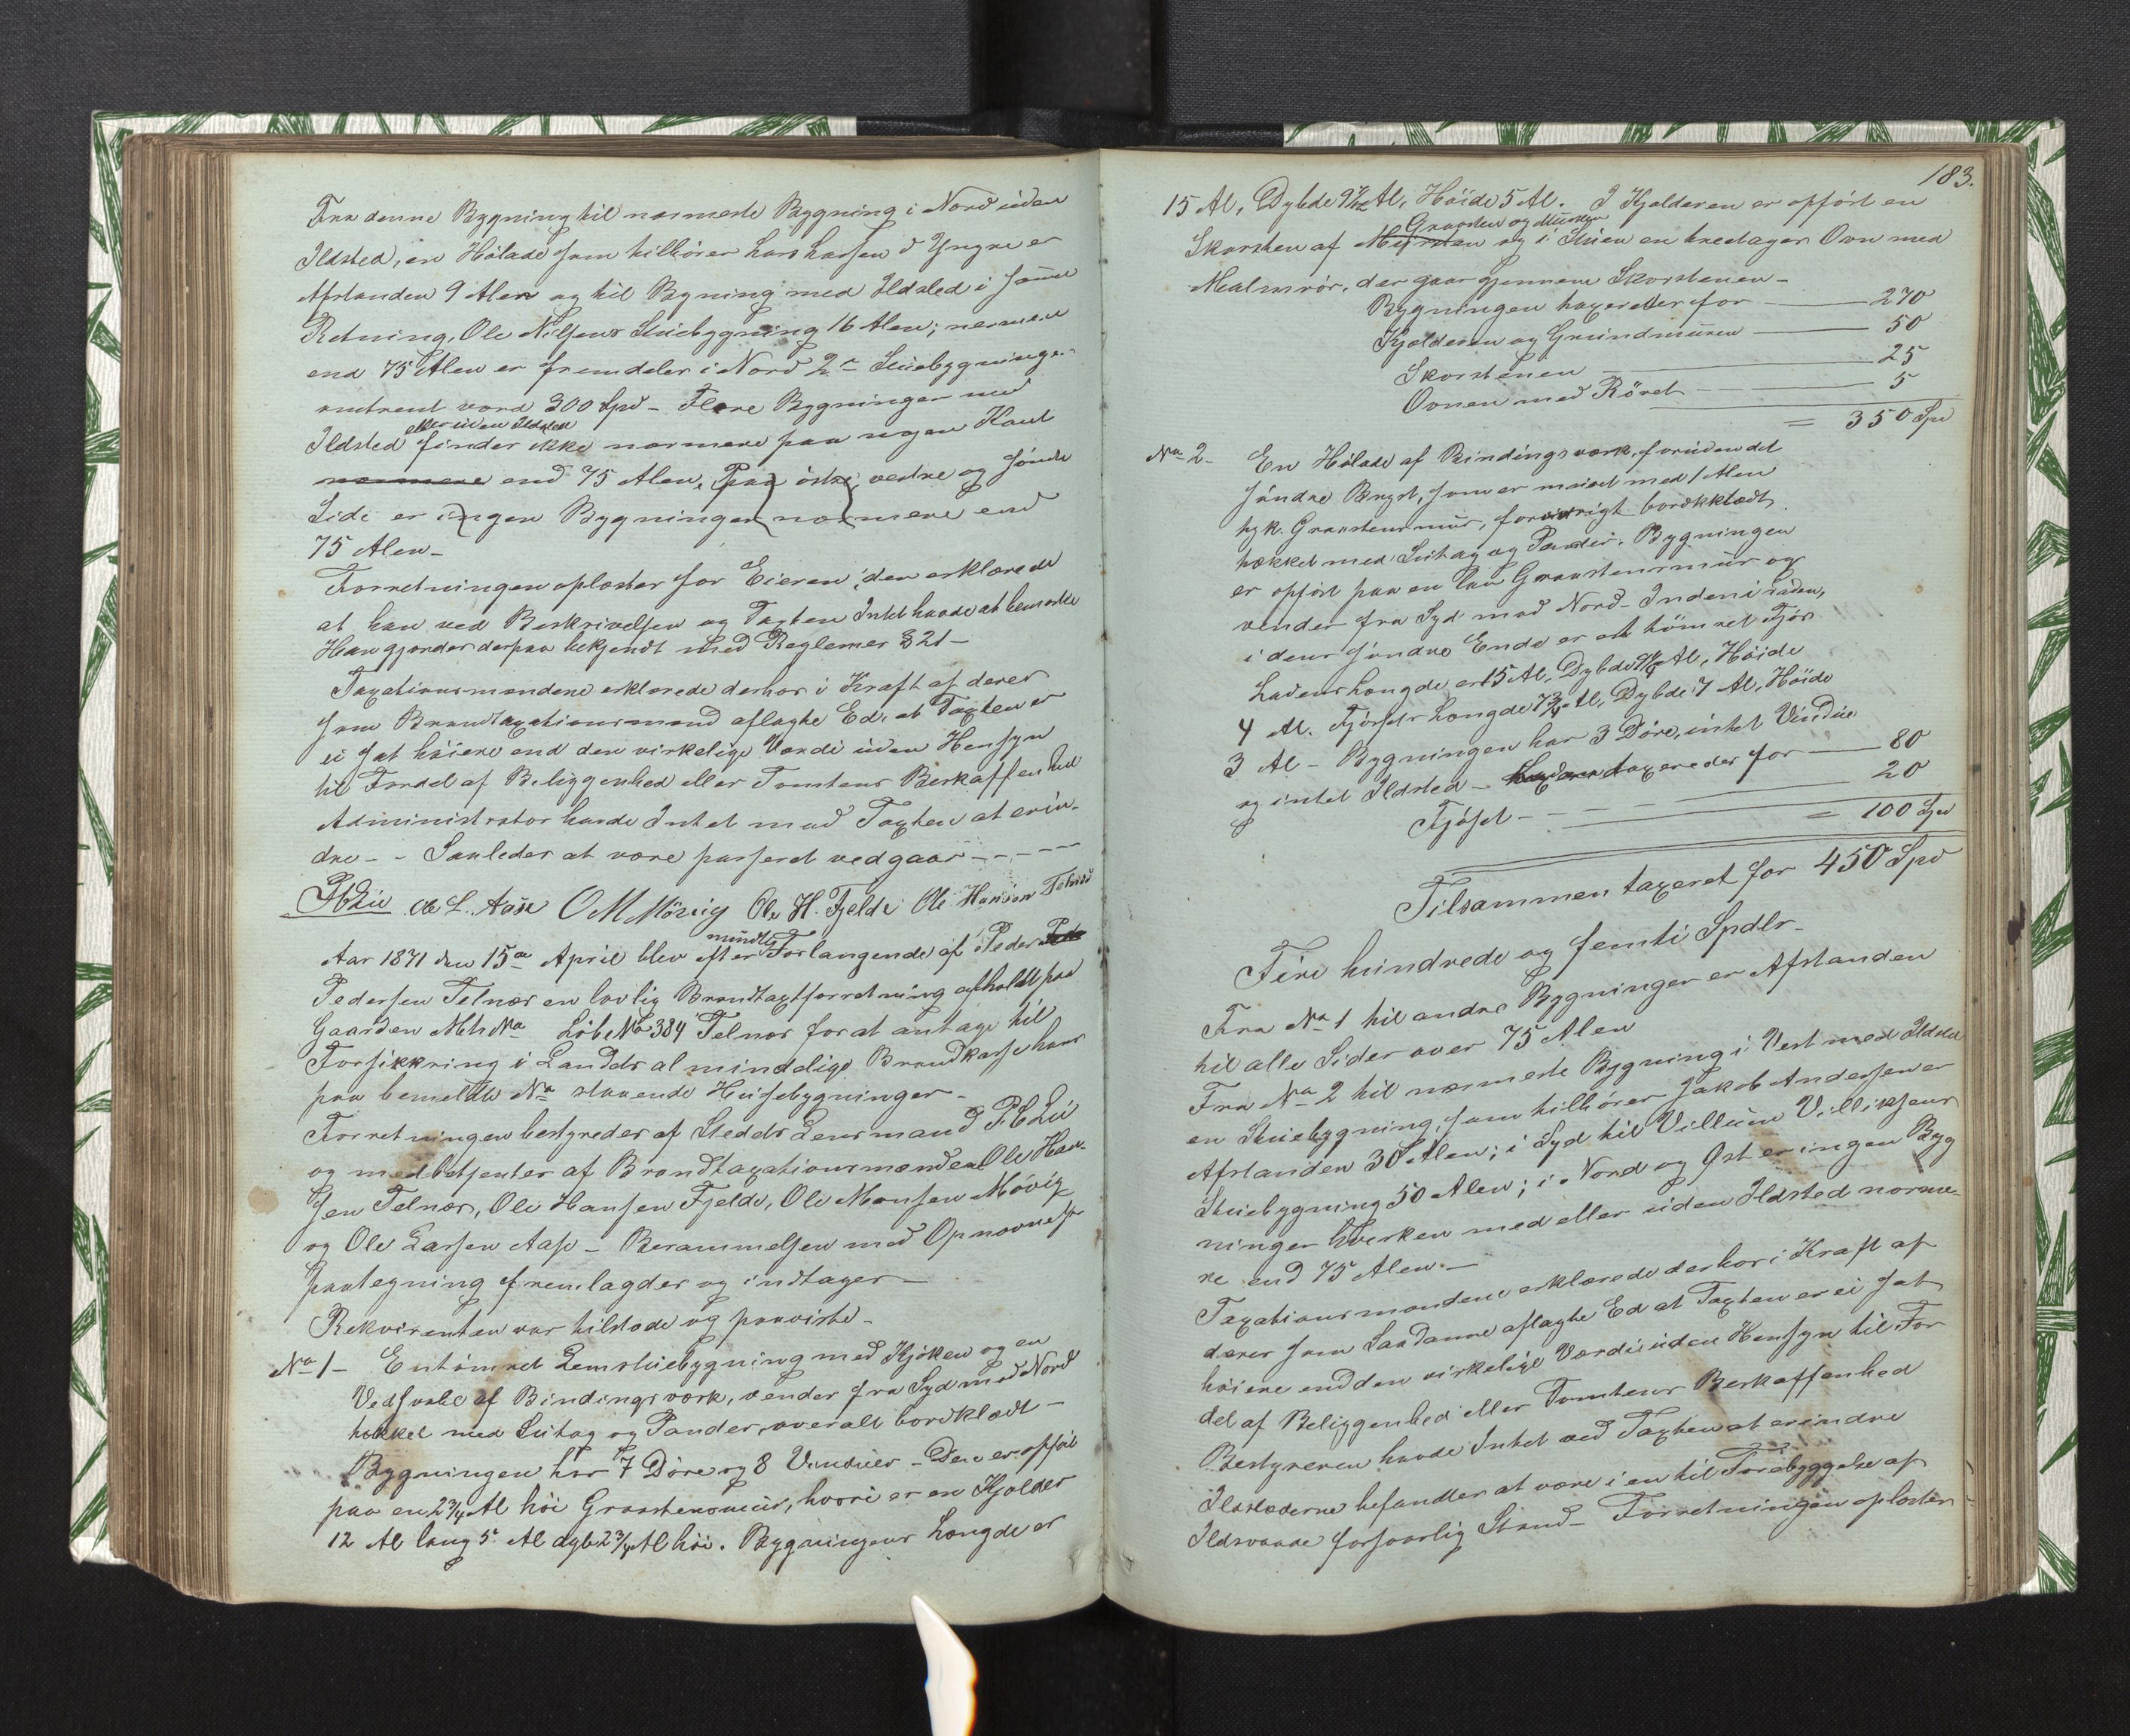 Fra denne Bygning til nærmeste Bygning i Nord uden
Ildsted, en Hølade som tilhører Lars Larsen d Yngre er
Afstanden 9 Alen og til Bygning med Ildsted i samme
Retning, Ole Nilsens Stuebygning 16 Alen; nærmere
end 75 Alen er fremdeles i Nord 2de Stuebygninger
omtrent værd 300 Spd – Flere Bygninger med
eller uden Ildsted
Ildsted findes ikke nærmere paa nogen Kant
nærmere end 75 Alen. Paa østre, vestre og søndre
Side er ingen Bygninger nærmere end
75 Alen –
Forretningen oplæstes for Eieren, der erklærede
at han ved Beskrivelsen og Taxten Intet havde at bemærke
Han gjordes derpaa bekjendt med Reglemets § 21 –
Taxationsmændene erklærede derhos i Kraft af deres
som Brandtaxationsmænd aflagte Ed, at Taxten er
ei sat høiere end den virkelige Værdi uden Hensyn
til Fordel af Beliggenhed eller Tomtens Beskaffenhed
Administrator havde Intet mod Taxten at erin-
dre – – Saaledes at være passeret vedgaar – – – –
Ole L. Aase O M Mövig Ole H. Fjelde Ole Hansen Telnæs
Aar 1871 den 15de April blev efter mundtlig Forlangende af Peder
Pedersen Telnæs en lovlig Brandtaxtforretning afholdt paa
Gaarden Mtr No Løb No 384 Telnæs for at antage til
Forsikkring i Landets almindelige Brandkasse hans
paa bemeldte No staaende Husebygninger –
Forretningen bestyredes af Stedets Lensmand
og medbetjentes af Brandtaxationsmændene Ole Han-
sen Telnæs, Ole Hansen Fjelde, Ole Monsen Mövig
og Ole Larsen Aase – Berammelsen med Opnævnelses
paategning fremlagdes og indtages –
Rekvirenten var tilstede og paaviste –
No 1 – En tømret Lemstuebygning med Kjøken og en
Vedsvale af Bindingsværk, vender fra Syd mod Nord
tækket med Sutag og Pander, overalt bordklædt –
Bygningen har 7 Døre og 8 Vinduer – Den er opført
paa en 2 3/4 Al høi Graastensmuur, hvori er en Kjelder
12 Al lang 5 Al dyb 2 3/4 Al høi. Bygningens Længde er
183.
15 Al, Dybde 9 1/2 Al, Høide 5 Al. I Kjelderen er opført en
Graasten og Mursten
Skorsten af Mursten og i Stuen en treetages Ovn med
Malmrör, der gaar gjennem Skorstenen –
Bygningen taxeredes for — 270
Kjelderen og Grundmuren — 50
Skorstenen — 25
Ovnen med Röret — 5
= 350 Spd
No 2 – En Hølade af Bindingsværk, foruden det
søndre Bryst, som er muret med 1 Alen
tyk Graastensmur, forøvrigt bordkklædt,
tækket med Sutag og Pander. Bygningen
er opført paa en lav Graastensmur og
vender fra Syd mod Nord – Inden i Laden,
i dens søndre Ende er et tömret Fjös
Ladens Længde er 15 Al, Dybde Al, Høide
4 Al. Fjösets Længde 7 3/4 Al, Dybde 7 Al, Höide
3 Al – Bygningen har 3 Döre, intet Vindue
og intet Ildsted – Laden taxeredes for — 80
Fjöset – — 20
= 100 Spd
Tilsammen taxeret for 450 Spd
Fire hundrede og femti Spdlr –
Fra No 1 til andre Bygninger er Afstanden
til alle Sider over 75 Alen
Fra No 2 til nærmeste Bygning i Vest med Ildsted
en Stuebygning, som tilhører Jakob Andersen er
Afstanden 30 Alen; i Syd til Villum Villiksens
Stuebygning 50 Alen; i Nord og Øst er ingen Byg
ninger hverken med eller uden Ildsted nærme-
re end 75 Alen. –
Taxationsmændene erklærede derhos i Kraft af
deres som Saadanne aflagte Ed at Taxten er ei sat
høiere end den virkelige Værdi uden Hensyn til For
del af Beliggenhed eller Tomtens Beskaffenhed
Bestyreren havde Intet ved Taxten at erindre
Ildstederne befandtes at være i en til Forebyggelse af
Ildsvaade forsvarlig Stand – Forretningen oplæstes